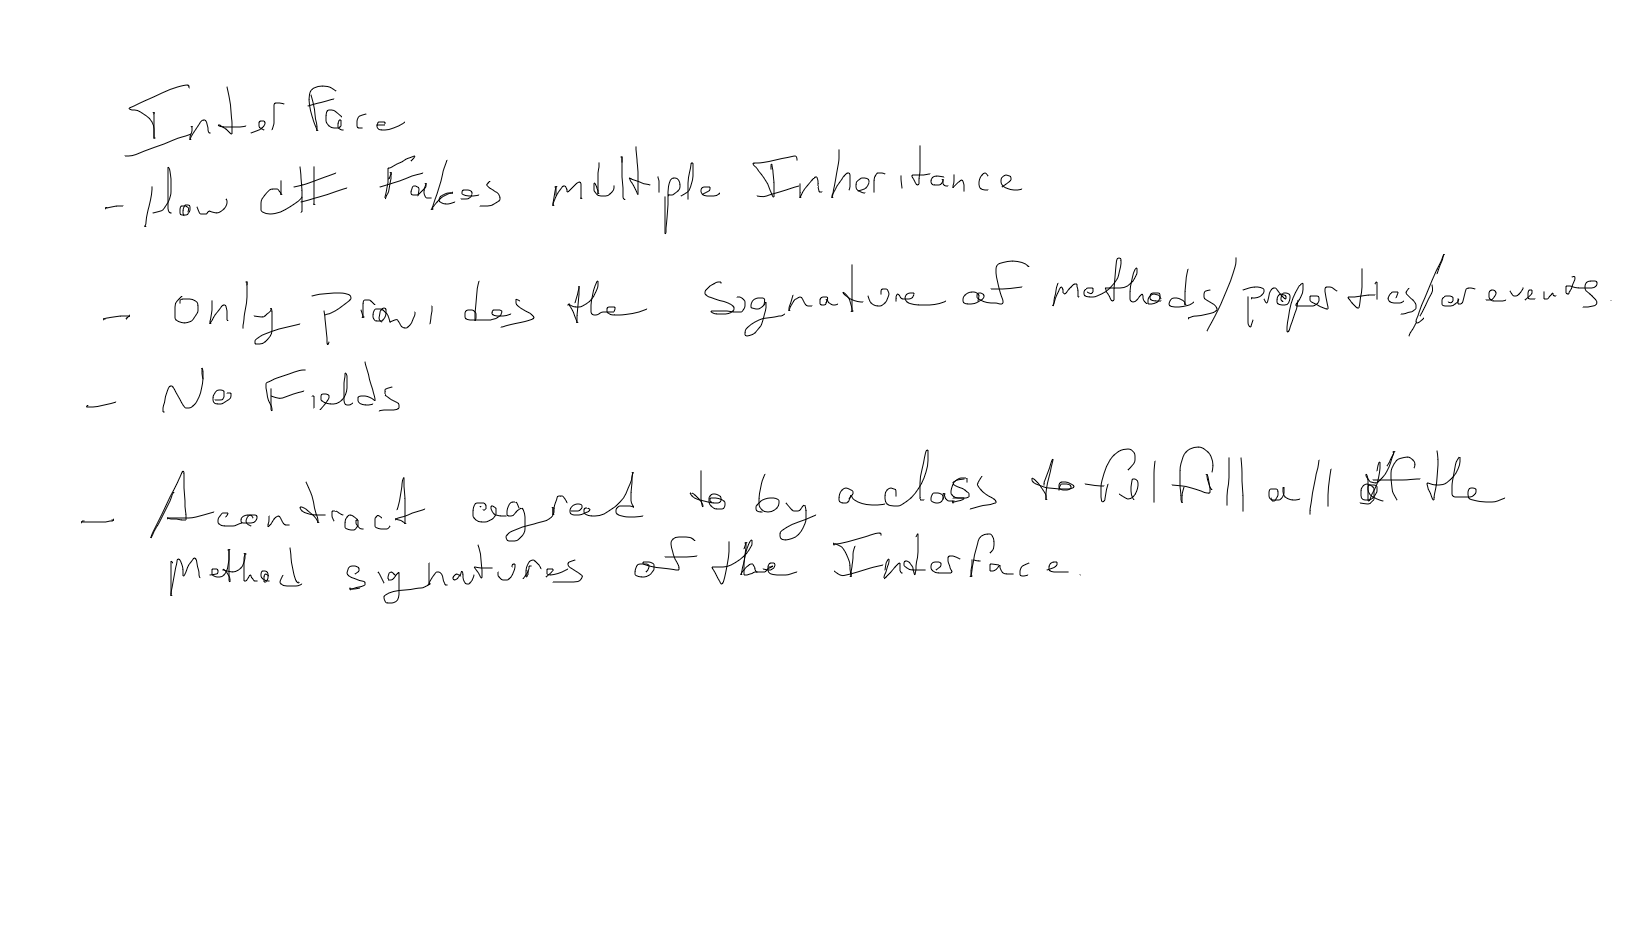 Interface
- How C# Fakes multiple Inheritance
- Only Provides the Signature of methods/properties/or events.
- No Fields
- A contract agreed to by a class to fulfill all of the
method signatures of the Interface.